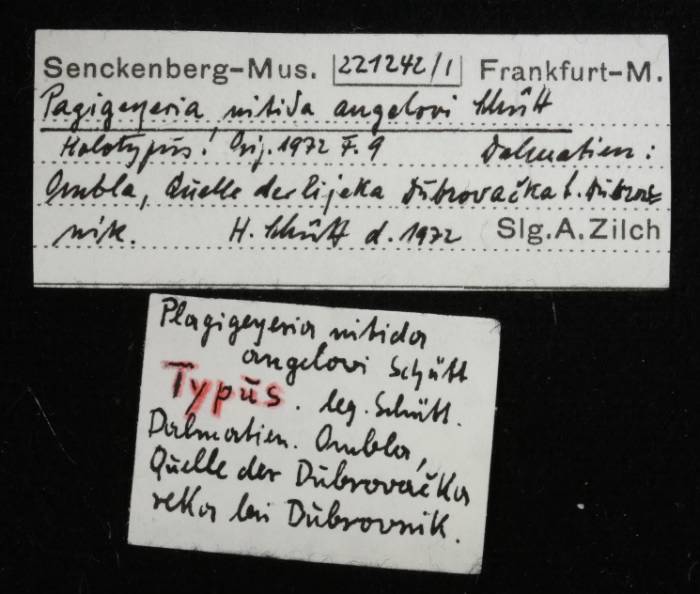 Senckenberg-Mus. 221242/1 Frankfurt-M.
Pagigeyeria nitida angelovi Schütt
Holotypus! Orig. 1972 F. 9 Dalmatien:
Ombla, Quelle der Rijeka Dubrovačka b. Dubrov=
nik. H. Schütt d. 1972 Slg. A. Zilch
Plagigeyeria nitida
angelovi Schütt
Typus. leg. Schütt.
Dalmatien. Ombla,
Quelle der Dubrovačka
reka bei Dubrovnik.